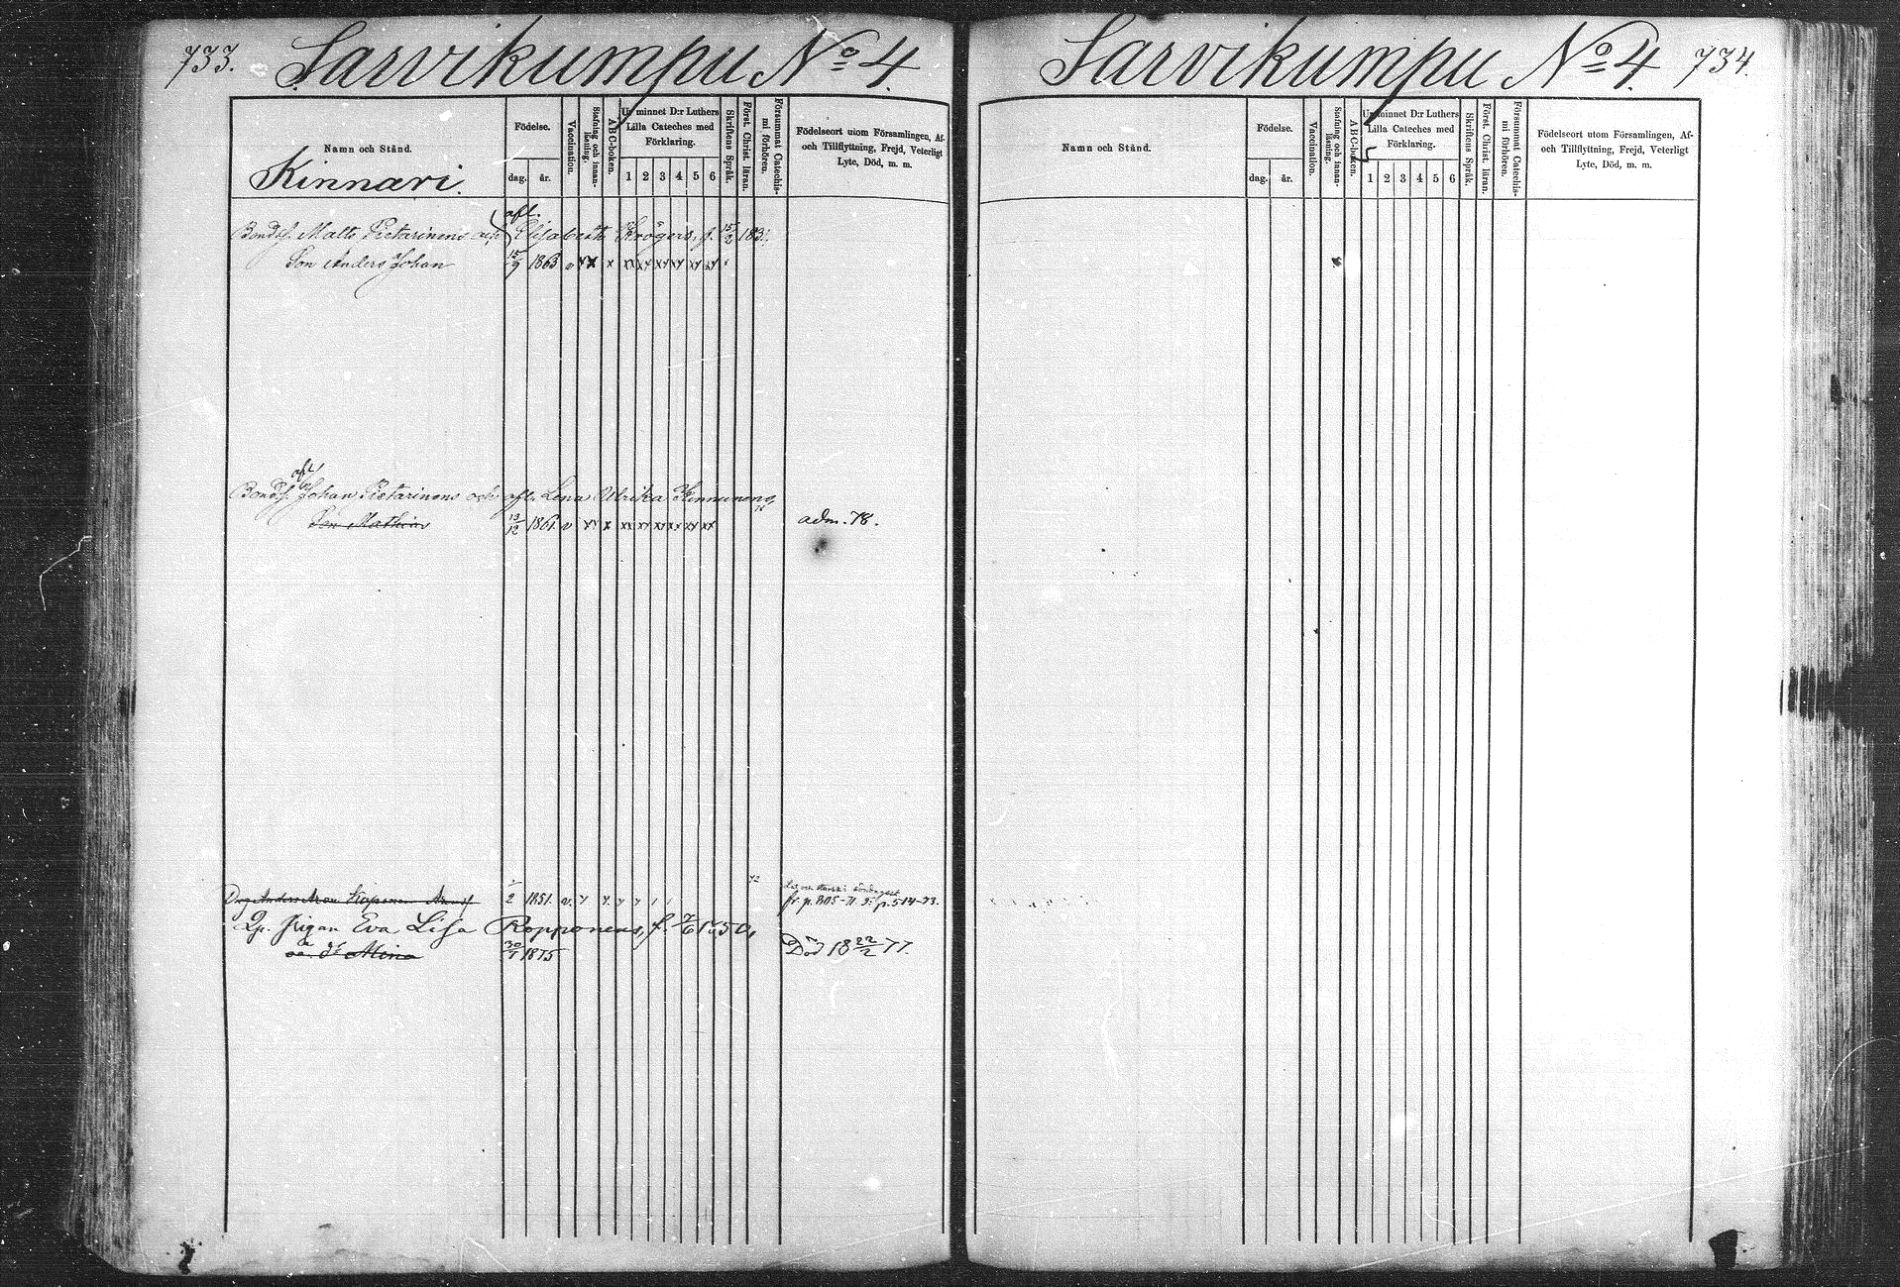 733. Sarvikumpu No 4.
Namn och Stånd.
Födelse.
dag. år.
Vaccination.
Stafning och innan-
läsning.
A B C-boken.
Ur minnet D:r Luthers
Lilla Cateches med
Förklaring.
1 2 3 4 5 6
Skriftens Språk.
Först. Christ. läran.
Försummat Catechis-
mi förhören.
Födelseort utom Församlingen, Af-
och Tillflyttning, Frejd, Veterligt
Lyte, Död, m. m.
Kinnari.
afl.
Bondes. Matts Pietarinens och Elisabeth Krögers, f. 183
Son Anders Johan 15/9 1863 v
afl.
Bondes. Johan Pietarinens och afl. Lena Ulrika Kinnunens,
Son Mathias 13/12 1861. v adm. 78.
Anders 2 1851. v. 72
fr. p. 514-73.
Qp. pigan Eva Lisa Ropponens, f. 1850,
oä. d:r Mina 1875 Död 18 22/2 77.
Sarvikumpu No 4. 734.
Namn och Stånd.
Födelse.
dag. år.
Vaccination.
Stafning och innan-
läsning.
A B C-boken.
Ur minnet D:r Luthers
Lilla Cateches med
Förklaring.
1 2 3 4 5 6
Skriftens Språk.
Först. Christ. läran.
Försummat Catechis-
mi förhören.
Födelseort utom Församlingen, Af-
och Tillflyttning, Frejd, Veterligt
Lyte, Död, m. m.